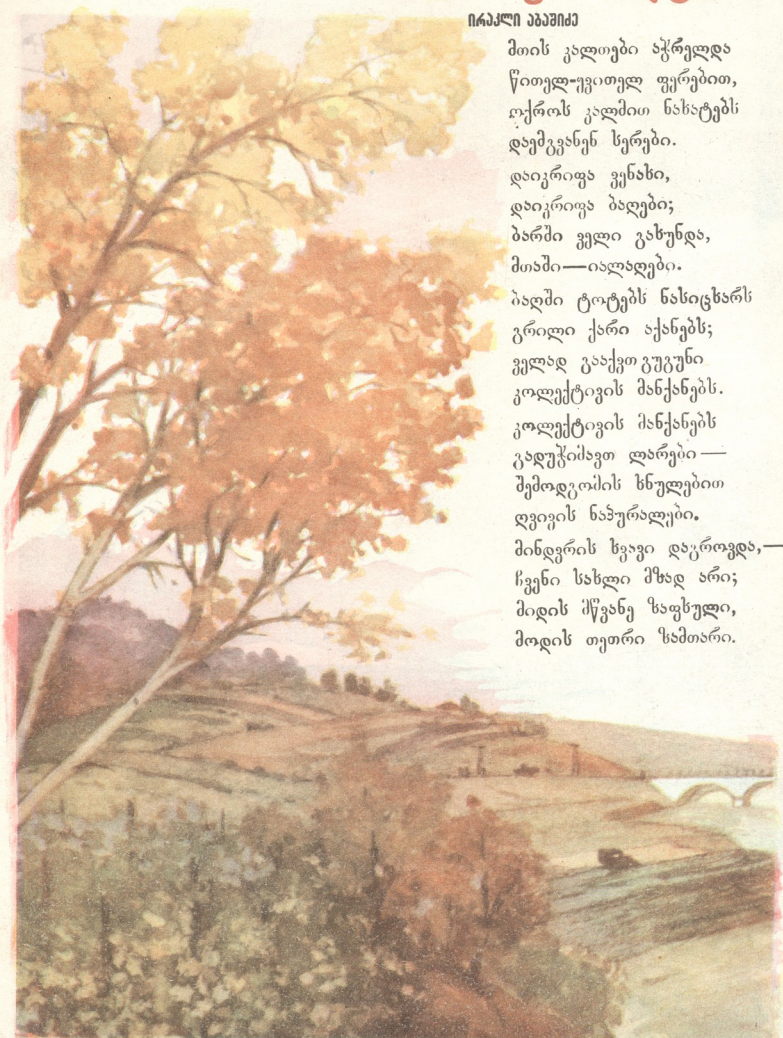 ირაკლი აბაშიძე
მთის კალთები აჭრელდა
წითელ-ყვითელ ფერებით,
ოქროს კალმით ნახატებს
დაემგვანენ სერები.
დაიკრიფა ვენახი,
დაიკრიფა ბაღები;
ბარში ველი გახუნდა,
მთაში—იალაღები.
ბაღში ტოტებს ნასიცხარს
გრილი ქარი აქანებს;
ველად გააქვთ გუგუნი
კოლექტივის მანქანებს.
კოლექტივის მანქანებს
გადუჭიმავთ ლარები —
შემოდგომის ხნულებით
ღვივის ნაპურალები.
მინდვრის ხვავი დაგროვდა,—
ჩვენი სახლი მზად არი;
მიდის მწვანე ზაფხული,
მოდის თეთრი ზამთარი.